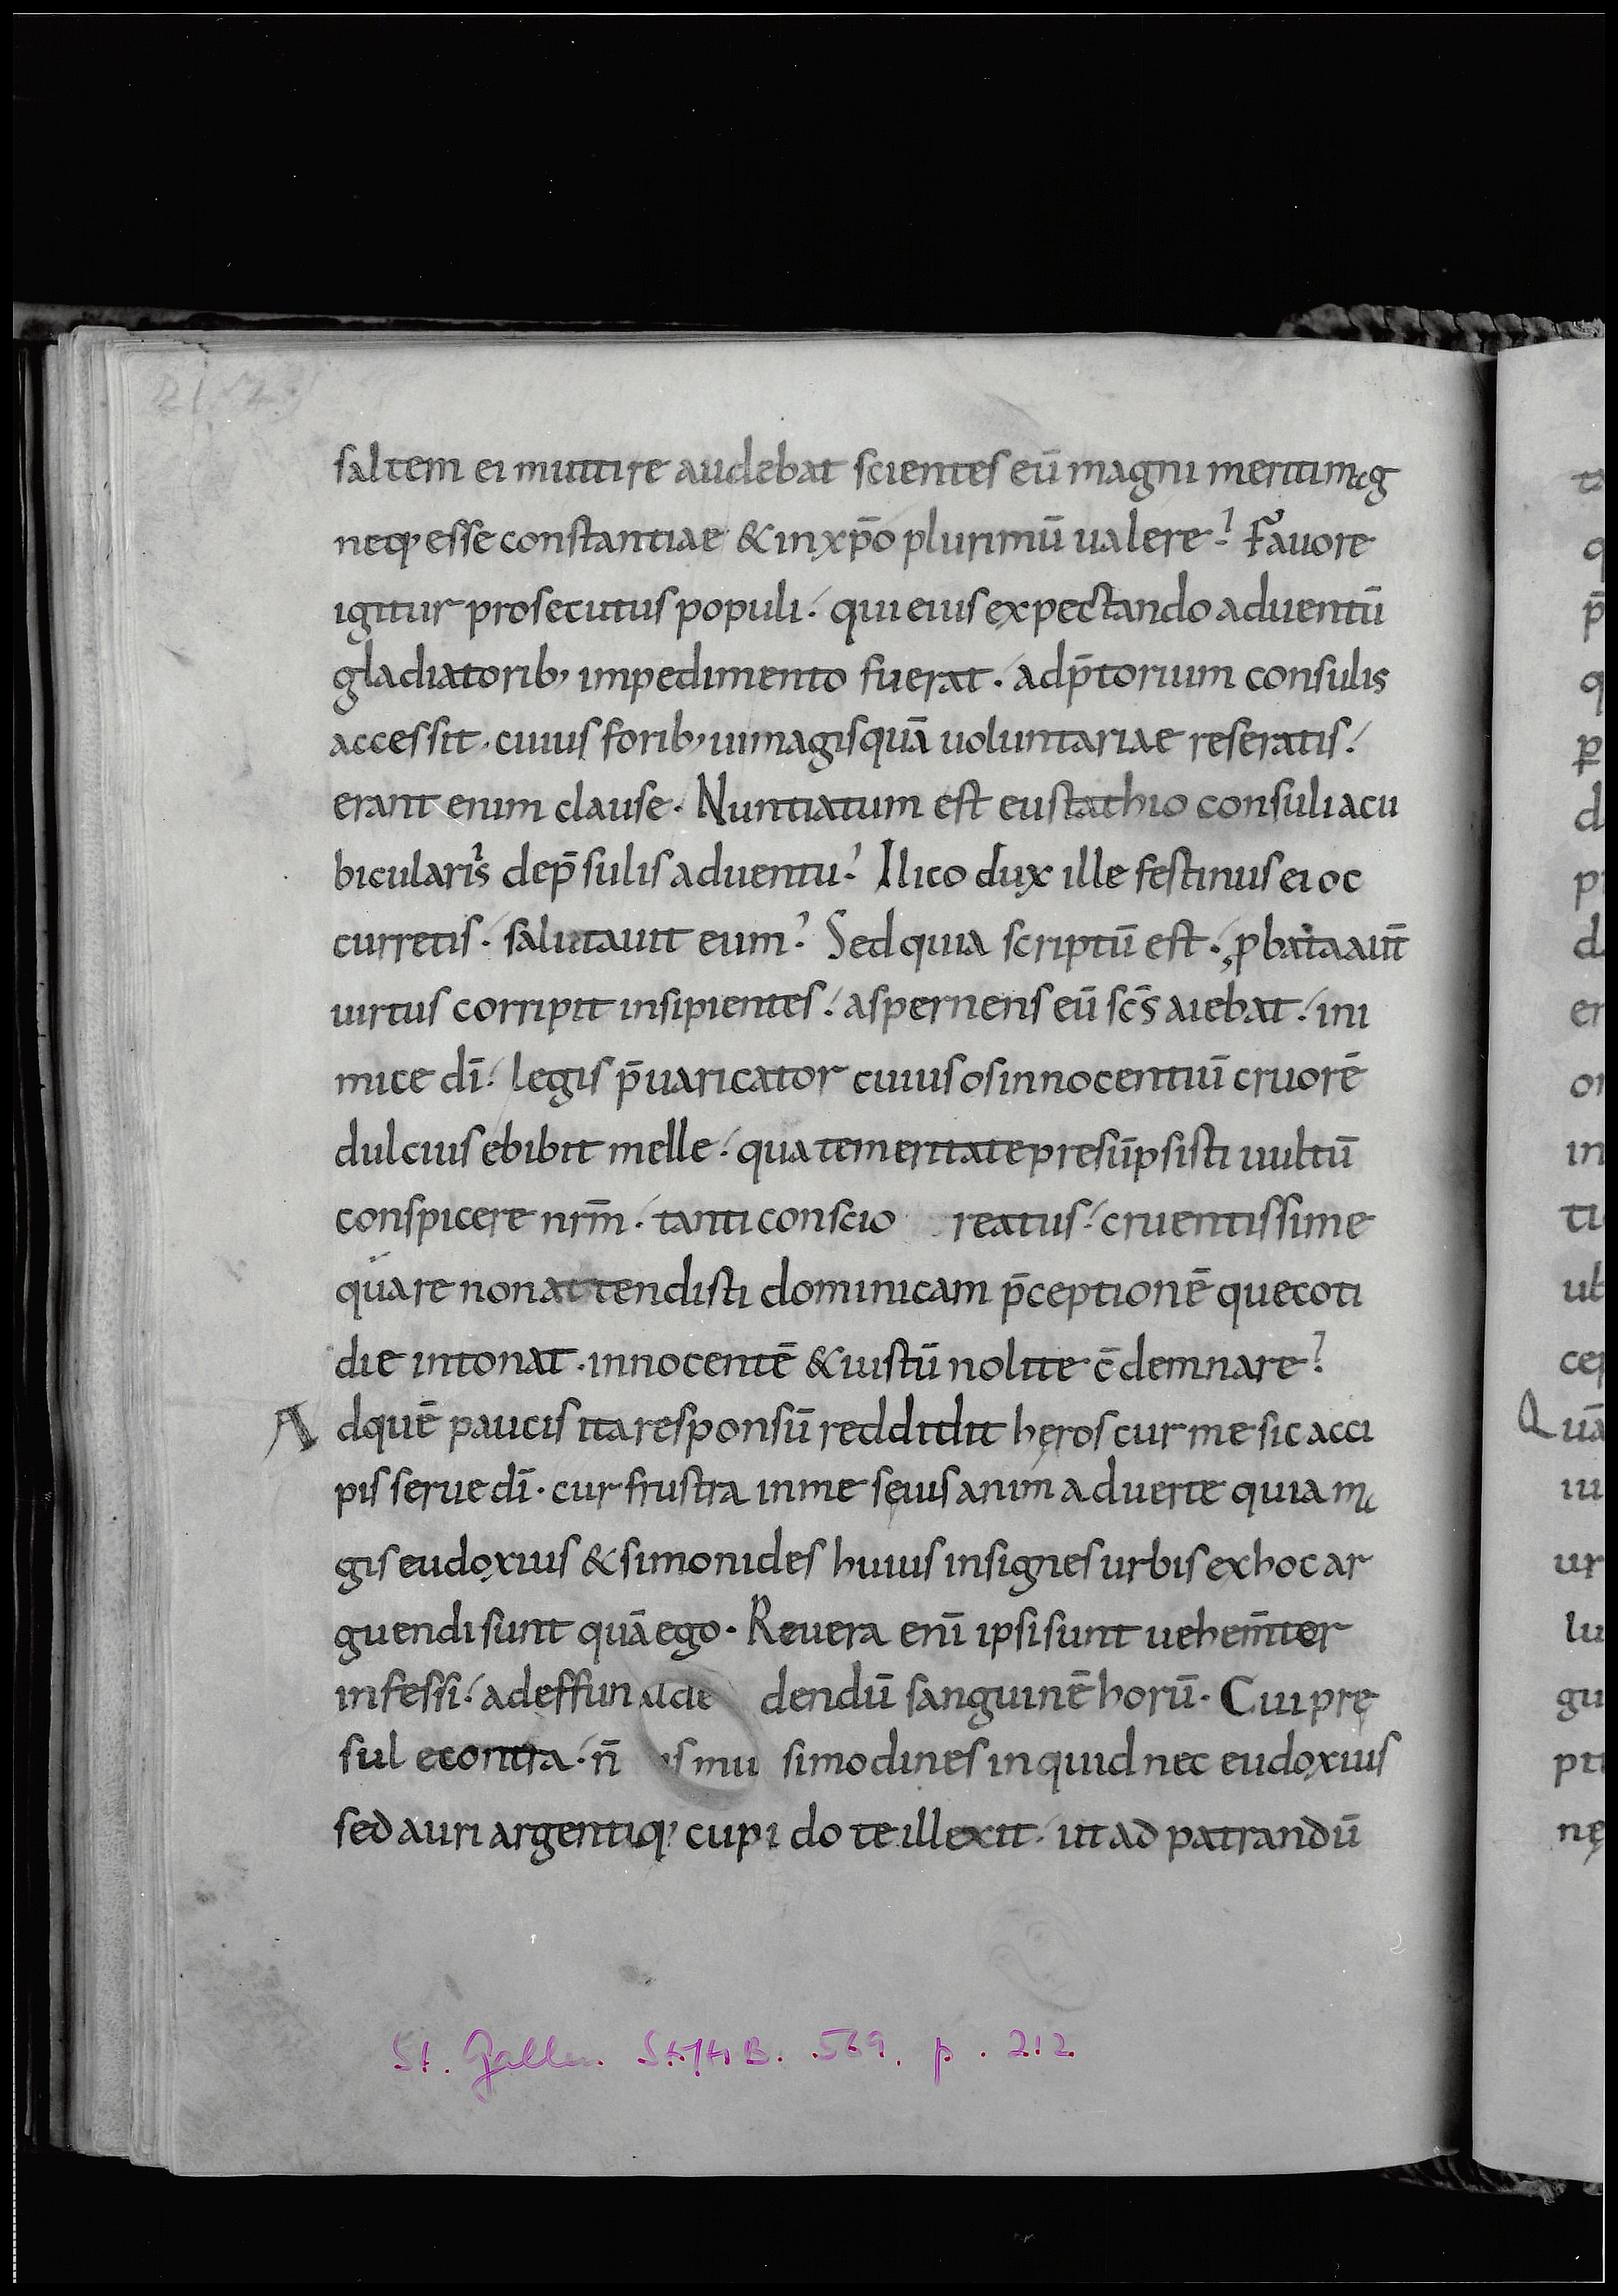 212
saltem ei muttire audebat scientes eū magni meriti mag
neq; esse constantiae & in xp̄o plurimū ualere? Fauore
igitur prosecutus populi. qui eius expectando aduentū
gladiatorib; impedimento fuerat. ad p̄torium consulis
accessit. cuius forib; ui magis quā uoluntariae reseratis.
erant enim clause. Nuntiatum est eustathio consuli a cu
bicularis de p̄sulis aduentu. Ilico dux ille festinus ei oc
curretis. salutauit eum. Sed quia scriptū est. p̱bata aut̄
uirtus corripit insipientes. aspernens eū sc̄s aiebat. ini
mice dī. legis p̄uaricator cuius os innocentiū cruorē
dulcius ebibit melle. qua temeritate presūpsisti uultū
conspicere nr̄m. tanti conscio reatus. cruentissime
quare non attendisti dominicam p̄ceptionē que coti
die intonat. innocentē & iustū nolite c̄demnare?
Ad quē paucis ita responsū reddidit heros cur me sic acci
pis serue dī. cur frustra in me seuis animaduerte quia ma
gis eudoxius & simonides huius insignes urbis ex hoc ar
guendi sunt quā ego. Reuera enī ipsi sunt uehem̄ter
infessi. ad effun dendū sanguinē horū. Cui pre
sul econtra. n̄ simodines inquid nec eudoxius
sed auri argentiq; cupido te illexit. ut ad patrandū
St. Gallen. StiftsB. 569. p. 212